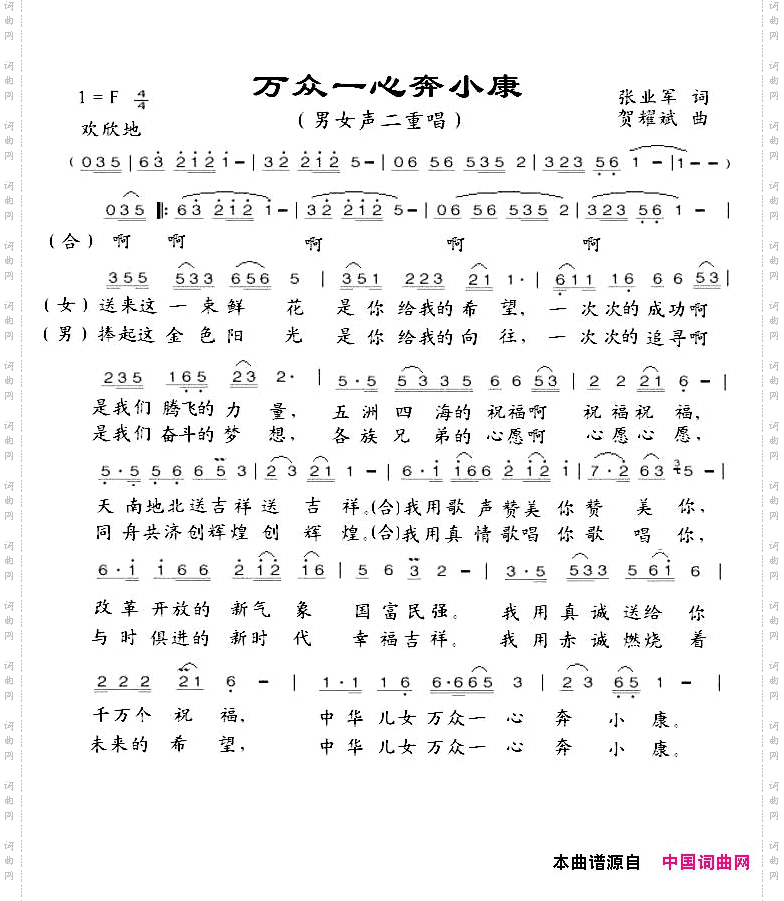 万众一心奔小康
1 = F 4/4
(男女声二重唱)
张业军 词
欢欣地
贺耀斌 曲
(035 | 63 2121 1- | 32 2121 5- | 06 56 535 2 | 323 56 1 - | 1 - - )
035 |: 63 212 1- | 32 2121 5- | 06 56 535 2 | 323 56 1 - |
(合) 啊 啊 啊 啊 啊
355 533 656 5 | 351 223 21 1· | 611 16 6 53 |
(女) 送来这 一 束鲜 花 是 你 给我的 希 望, 一 次次的 成功啊
(男) 捧起这 金 色阳 光 是 你 给我的 向 往, 一 次次的 追寻啊
235 165 23 2· | 5·5 533 5 6 6 53 | 2 2 21 6 - |
是我们 腾飞的 力 量, 五 洲 四 海的 祝福啊 祝 福 祝 福,
是我们 奋斗的 梦 想, 各 族 兄 弟的 心愿啊 心 愿 心 愿,
5·5 56 65 3 | 23 21 1 - | 6·1 166 2 12 1 | 7·2 63 5 - |
天 南地北送吉祥送 吉 祥。(合)我用歌 声赞美 你赞 美 你,
同 舟共济创辉煌创 辉 煌。(合)我用真 情歌唱 你歌 唱 你,
6·1 166 2 12 16 | 5 6 3 2 - | 3·5 533 561 6 |
改 革 开放的 新气 象 国富民强。 我 用 真 诚 送给 你
与 时 俱进的 新时 代 幸福吉祥。 我 用 赤 诚 燃烧 着
2 2 2 21 6 - | 1·1 16 6·665 3 | 23 65 1 - |
千万个 祝 福, 中 华 儿女 万众一 心 奔 小 康。
未来的 希 望, 中 华 儿女 万众一 心 奔 小 康。
本曲谱源自 中国词曲网
词曲网